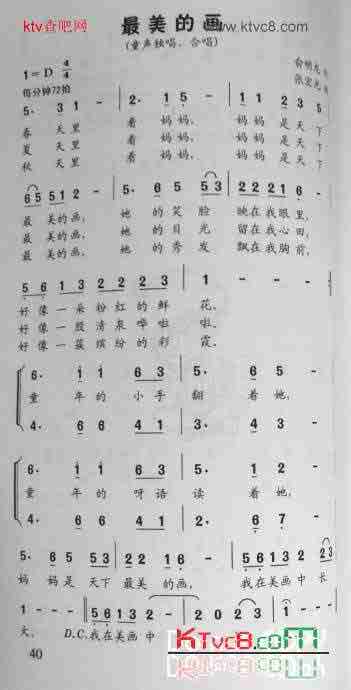 ktv查吧网
www.ktvc8.com
最美的画
(童声独唱、合唱)
1=D 4/4
每分钟72拍
5· 3 1 — 2· 1 5 — 1 1 2 2 3 5
春天里 看妈妈, 妈妈是天下
夏天里 看妈妈, 妈妈是天下
秋天里 看妈妈, 妈妈是天下
6 5 5 1 2 — — 5· 6 5 5 3 2 2 2 1 6 —
最美的画, 她的笑脸 映在我眼里,
最美的画, 她的目光 留在我心田,
最美的画, 她的秀发 飘在我胸前,
5 6 1 3 2 2 2 3 1 — — —
好像一朵粉红的鲜花。
好像一股清泉哗啦啦。
好像一簇缤纷的彩霞。
6· 1 1 6 3 5· 3 5 6 —
童年的小手翻着她,
4· 6 6 4 1 3· 2 3 4 —
6· 1 1 6 3 5· 1 2 —
童年的呀语读着她,
4· 6 6 4 1 2· 6 7 —
5· 6 5 5 3 2 2 1 6 — 5 6 1 3 2 2 3
妈妈是天下 最美的画, 我在美画中长
1 — — 5 6 1 3 2 — 2 0 2 3 1 —
大。 D.C.我在美画中
40
KTvc8.com